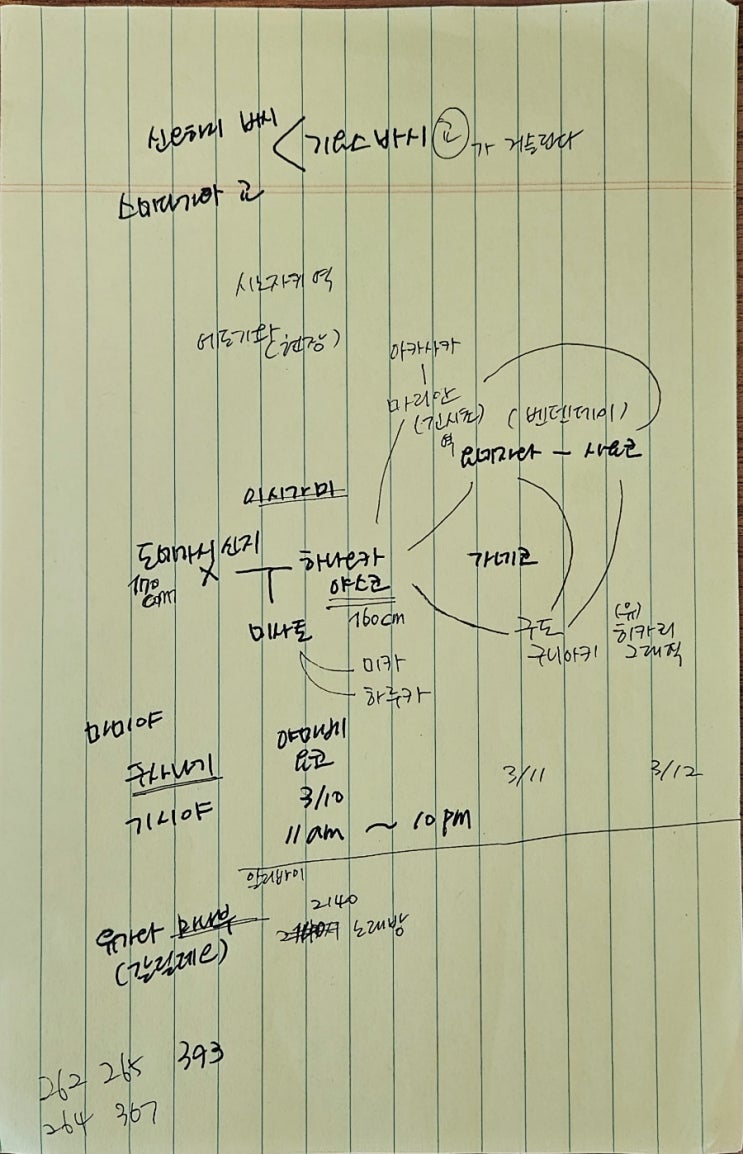 신오하시 버시 < 기요스바시 교 가 거슬린다
스미다가와 교
시노자키 역
에도가와 (현장)
아카사카
마리안
(긴시쵸)
역
(벤텐테이)
요네자와 - 사요코
이시가미
도가시 신지
170
cm
×
하나오카
야스코
160cm
가네코
미사토
미카
하루카
구도
구니아키
(유)
히카리
그래픽
마미야
구사나기
기시야
야마베
요코
3/10
11am ~ 10pm
3/11
3/12
알리바이
유가와 마나부
(갈릴레오)
2140
노래방
262 265 393
264 367